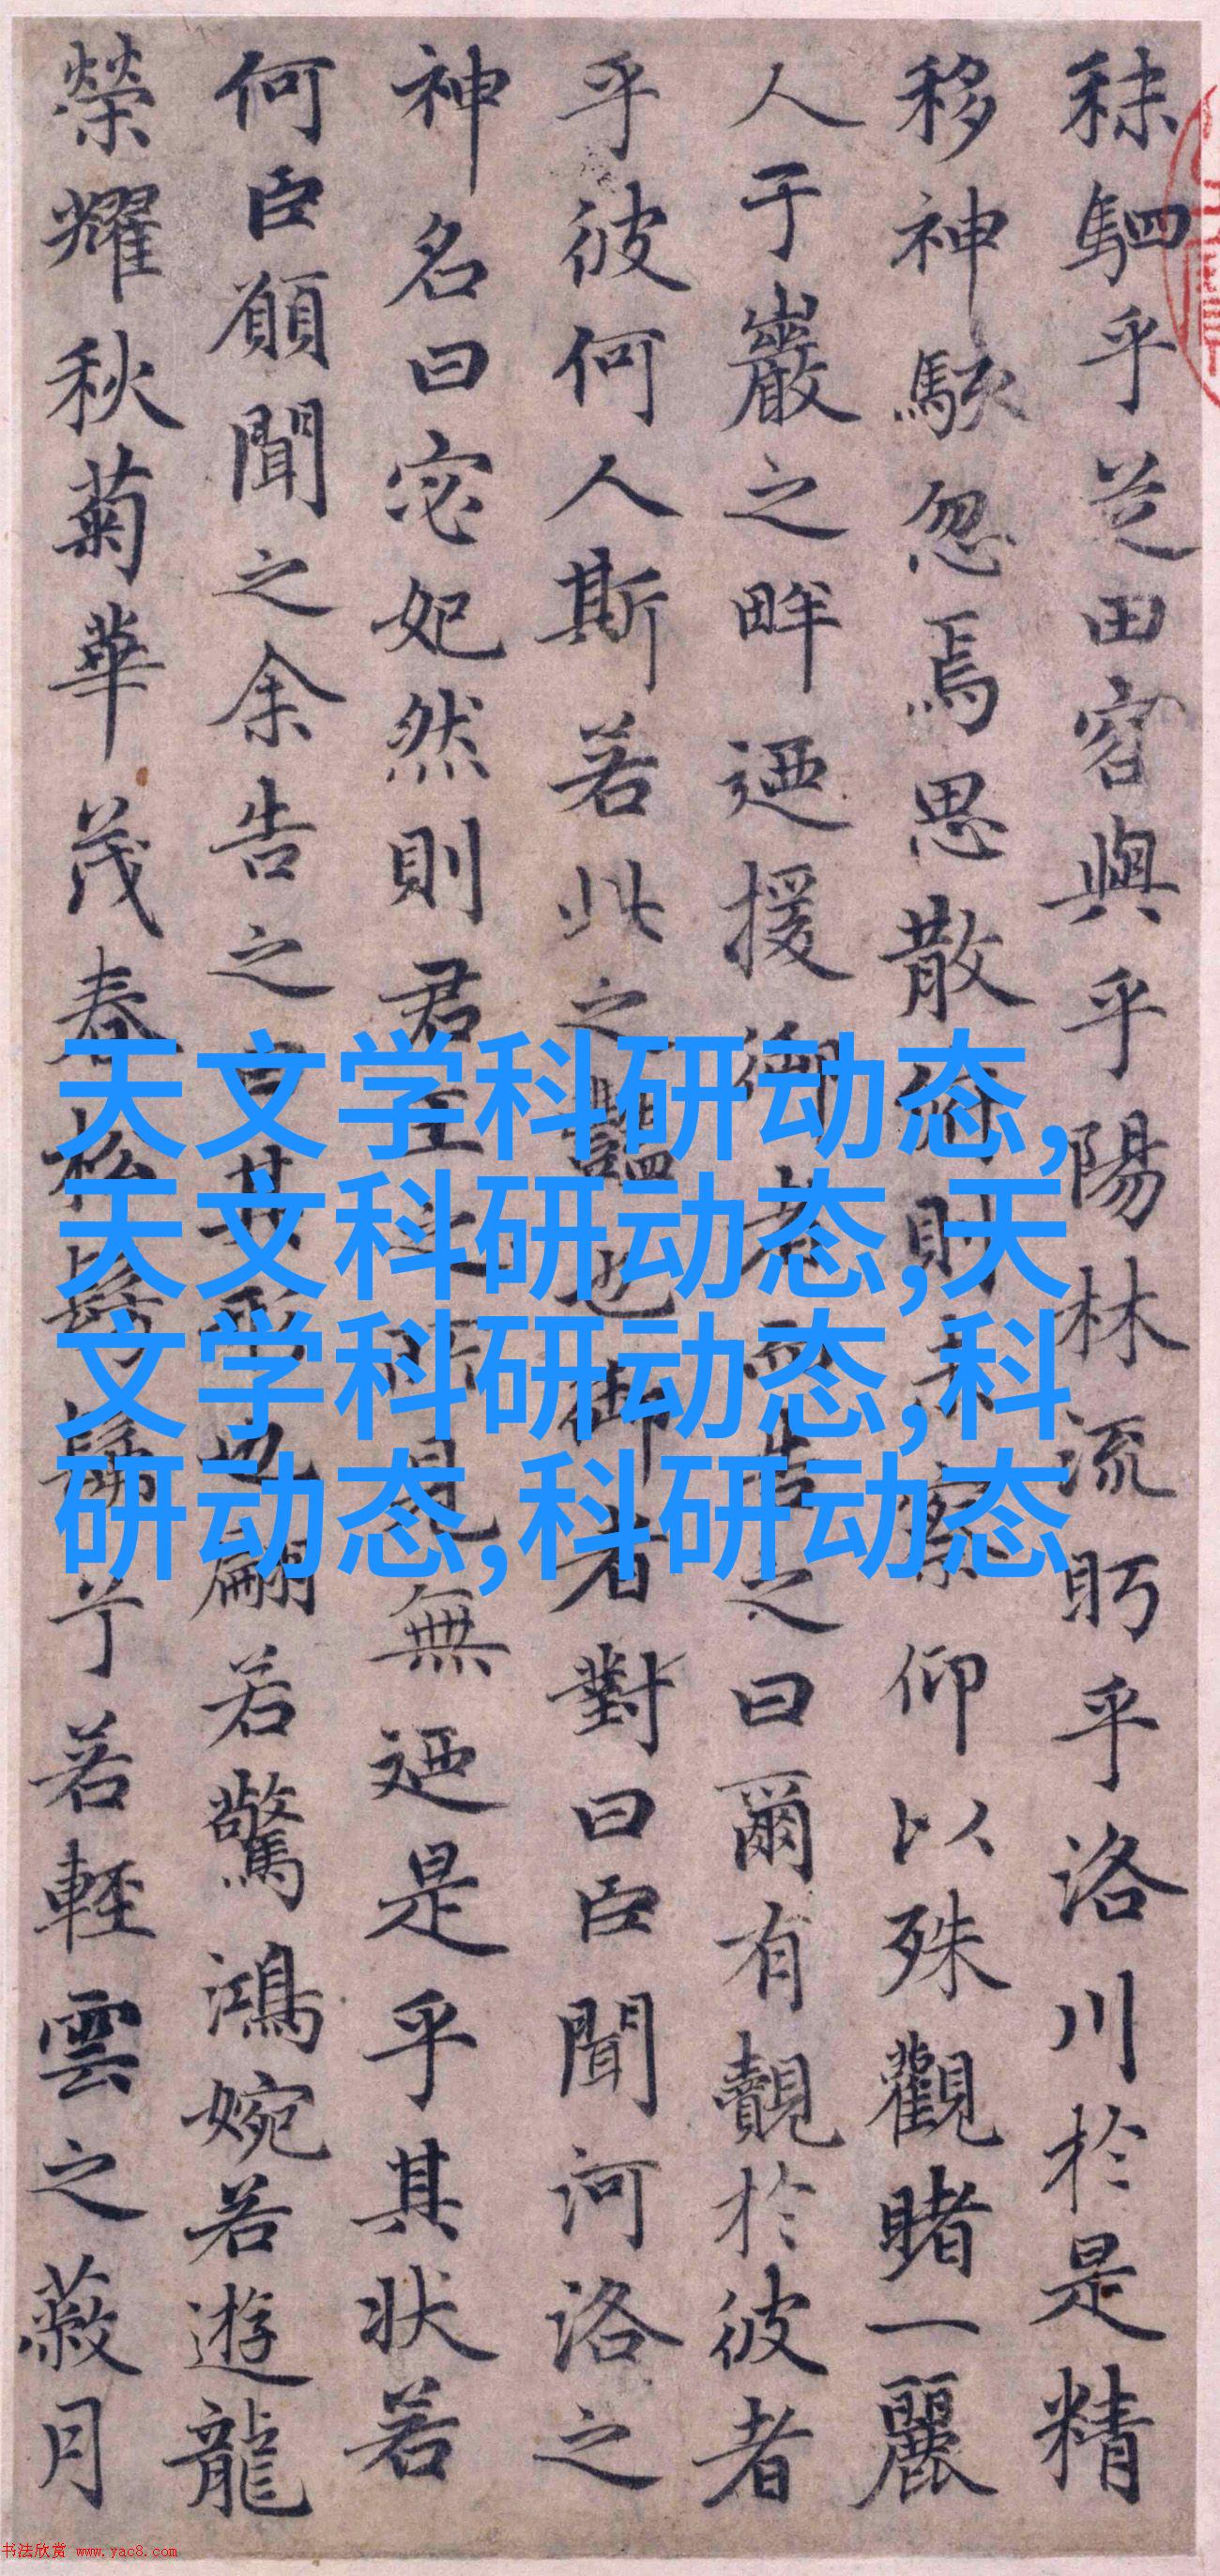 秣駟乎芝田容與乎陽林流眄乎洛川於是精
移神駭忽焉思散俯則未察仰以殊觀睹一麗
人于巖之畔迺援御者而告之曰爾有覿於彼者
乎彼何人斯若此之豔也御者對曰臣聞河洛之
神名曰宓妃然則君王之所見無迺是乎其狀若
何臣願聞之余告之曰其形也翩若驚鴻婉若遊龍
榮耀秋菊華茂春松髣髴兮若輕雲之蔽月
天文学科研动态,
天文科研动态,天
文学科研动态,科
研动态,科研动态
书法欣赏 www.yac8.com